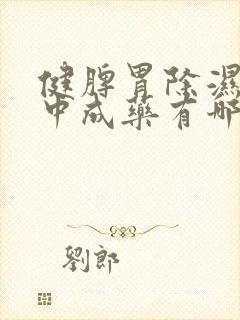 健脾胃除濕
中成藥有哪
劉郎